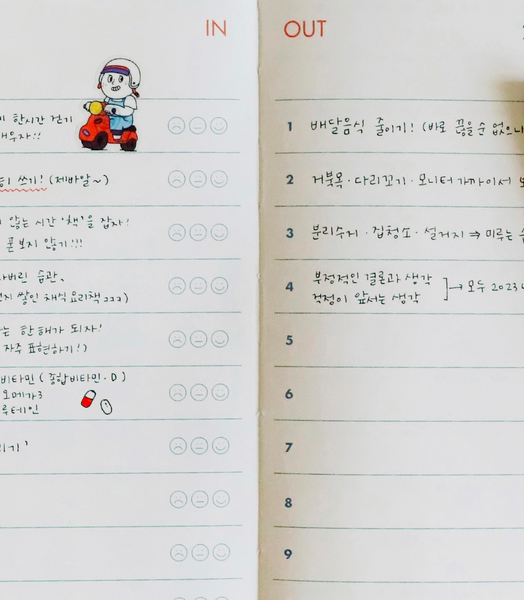 IN
한시간 걷기
채우자!!
쓰기! (제바알~)
않는 시간 '책'을 잡자!
폰 보지 않기!!!
버린 습관,
쌓인 채식 요리책
는 한 해가 되자!
자주 표현하기!)
비타민 (종합비타민·D)
오메가3
루테인
기'
OUT
1 배달음식 줄이기! (바로 끊을 순 없으니
2 거북목·다리꼬기·모니터 가까이서
3 분리수거·집청소·설거지 ⇒ 미루는
4 부정적인 결론과 생각
걱정이 앞서는 생각 ]→ 모두 2023
5
6
7
8
9